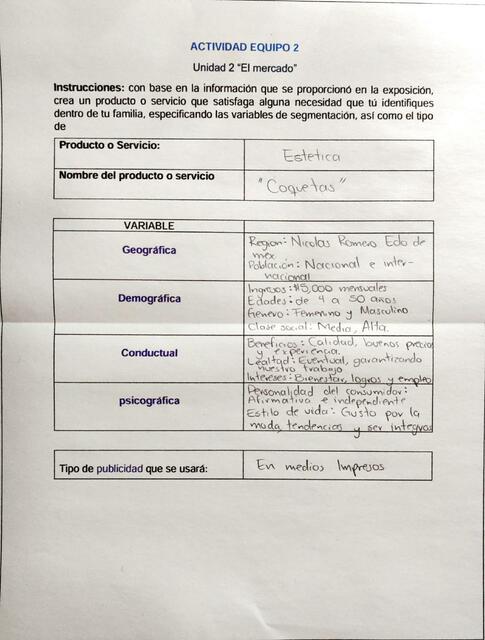 ACTIVIDAD EQUIPO 2
Unidad 2 "El mercado"
Instrucciones: con base en la información que se proporcionó en la exposición,
crea un producto o servicio que satisfaga alguna necesidad que tú identifiques
dentro de tu familia, especificando las variables de segmentación, así como el tipo
de
Producto o Servicio:
Estetica
Nombre del producto o servicio
"Coquetas"
VARIABLE
Geográfica
Region: Nicolas Romero Edo de
mex
Población: Nacional e inter-
nacional
Demográfica
Ingresos: $15,000 mensuales
Edades: de 4 a 50 años
Genero: Femenino y Masculino
Clase social: Media, Alta.
Conductual
Beneficios: Calidad, buenos precios
y experiencia.
Lealtad: Eventual, garantizando
nuestro trabajo
Intereses: Bienestar, logros y empleo
psicográfica
Personalidad del consumidor:
Afirmativa e independiente
Estilo de vida: Gusto por la
moda, tendencias y ser integros
Tipo de publicidad que se usará:
En medios Impresos